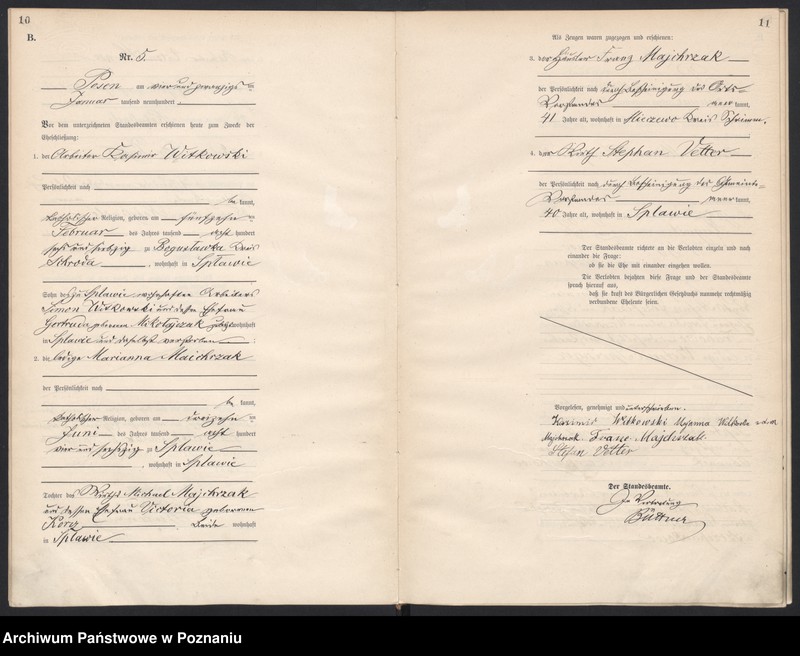 10
B.
Nr. 5.
Posen am vier und zwanzigsten
Januar tausend neunhundert
Vor dem unterzeichneten Standesbeamten erschienen heute zum Zwecke der
Eheschließung:
1. der Arbeiter Kasimir Witkowski
der Persönlichkeit nach
be kannt,
katholischer Religion, geboren am fünfzehnten
Februar des Jahres tausend acht hundert
sechs und siebzig zu Boguslawka Kreis
Schroda, wohnhaft in Splawie
Sohn des zu Splawie wohnhaften Arbeiters
Simon Witkowski und dessen Ehefrau
Gertrud geborenen Mikołajczak zuletzt wohnhaft
in Splawie und daselbst verstorben;
2. die ledige Marianna Majchrzak
der Persönlichkeit nach
be kannt,
katholischer Religion, geboren am dreizehnten
Juni des Jahres tausend acht hundert
vier und siebzig zu Splawie
, wohnhaft in Splawie
Tochter des Wirths Michael Majchrzak
und dessen Ehefrau Victoria geborenen
Beide wohnhaft
in Splawie
11
Als Zeugen waren zugezogen und erschienen:
3. der Häusler Franz Majchrzak
der Persönlichkeit nach durch Bescheinigung des Orts-
Vorstandes aner kannt,
41 Jahre alt, wohnhaft in Mieczewo Kreis Schrimm,
4. der Wirth Stephan Vetter
der Persönlichkeit nach durch Bescheinigung des Gemeinde-
Vorstandes aner kannt,
40 Jahre alt, wohnhaft in Splawie
Der Standesbeamte richtete an die Verlobten einzeln und nach
einander die Frage:
ob sie die Ehe mit einander eingehen wollen.
Die Verlobten bejahten diese Frage und der Standesbeamte
sprach hierauf aus,
daß sie kraft des Bürgerlichen Gesetzbuchs nunmehr rechtmäßig
verbundene Eheleute seien.
Vorgelesen, genehmigt und unterschrieben.
Kazimir Witkowski Myanna Witkoska
Majchrzak Franc Majchrzak
Stefan Vetter
Der Standesbeamte.
In Vertretung
Büttner
Archiwum Państwowe w Poznaniu